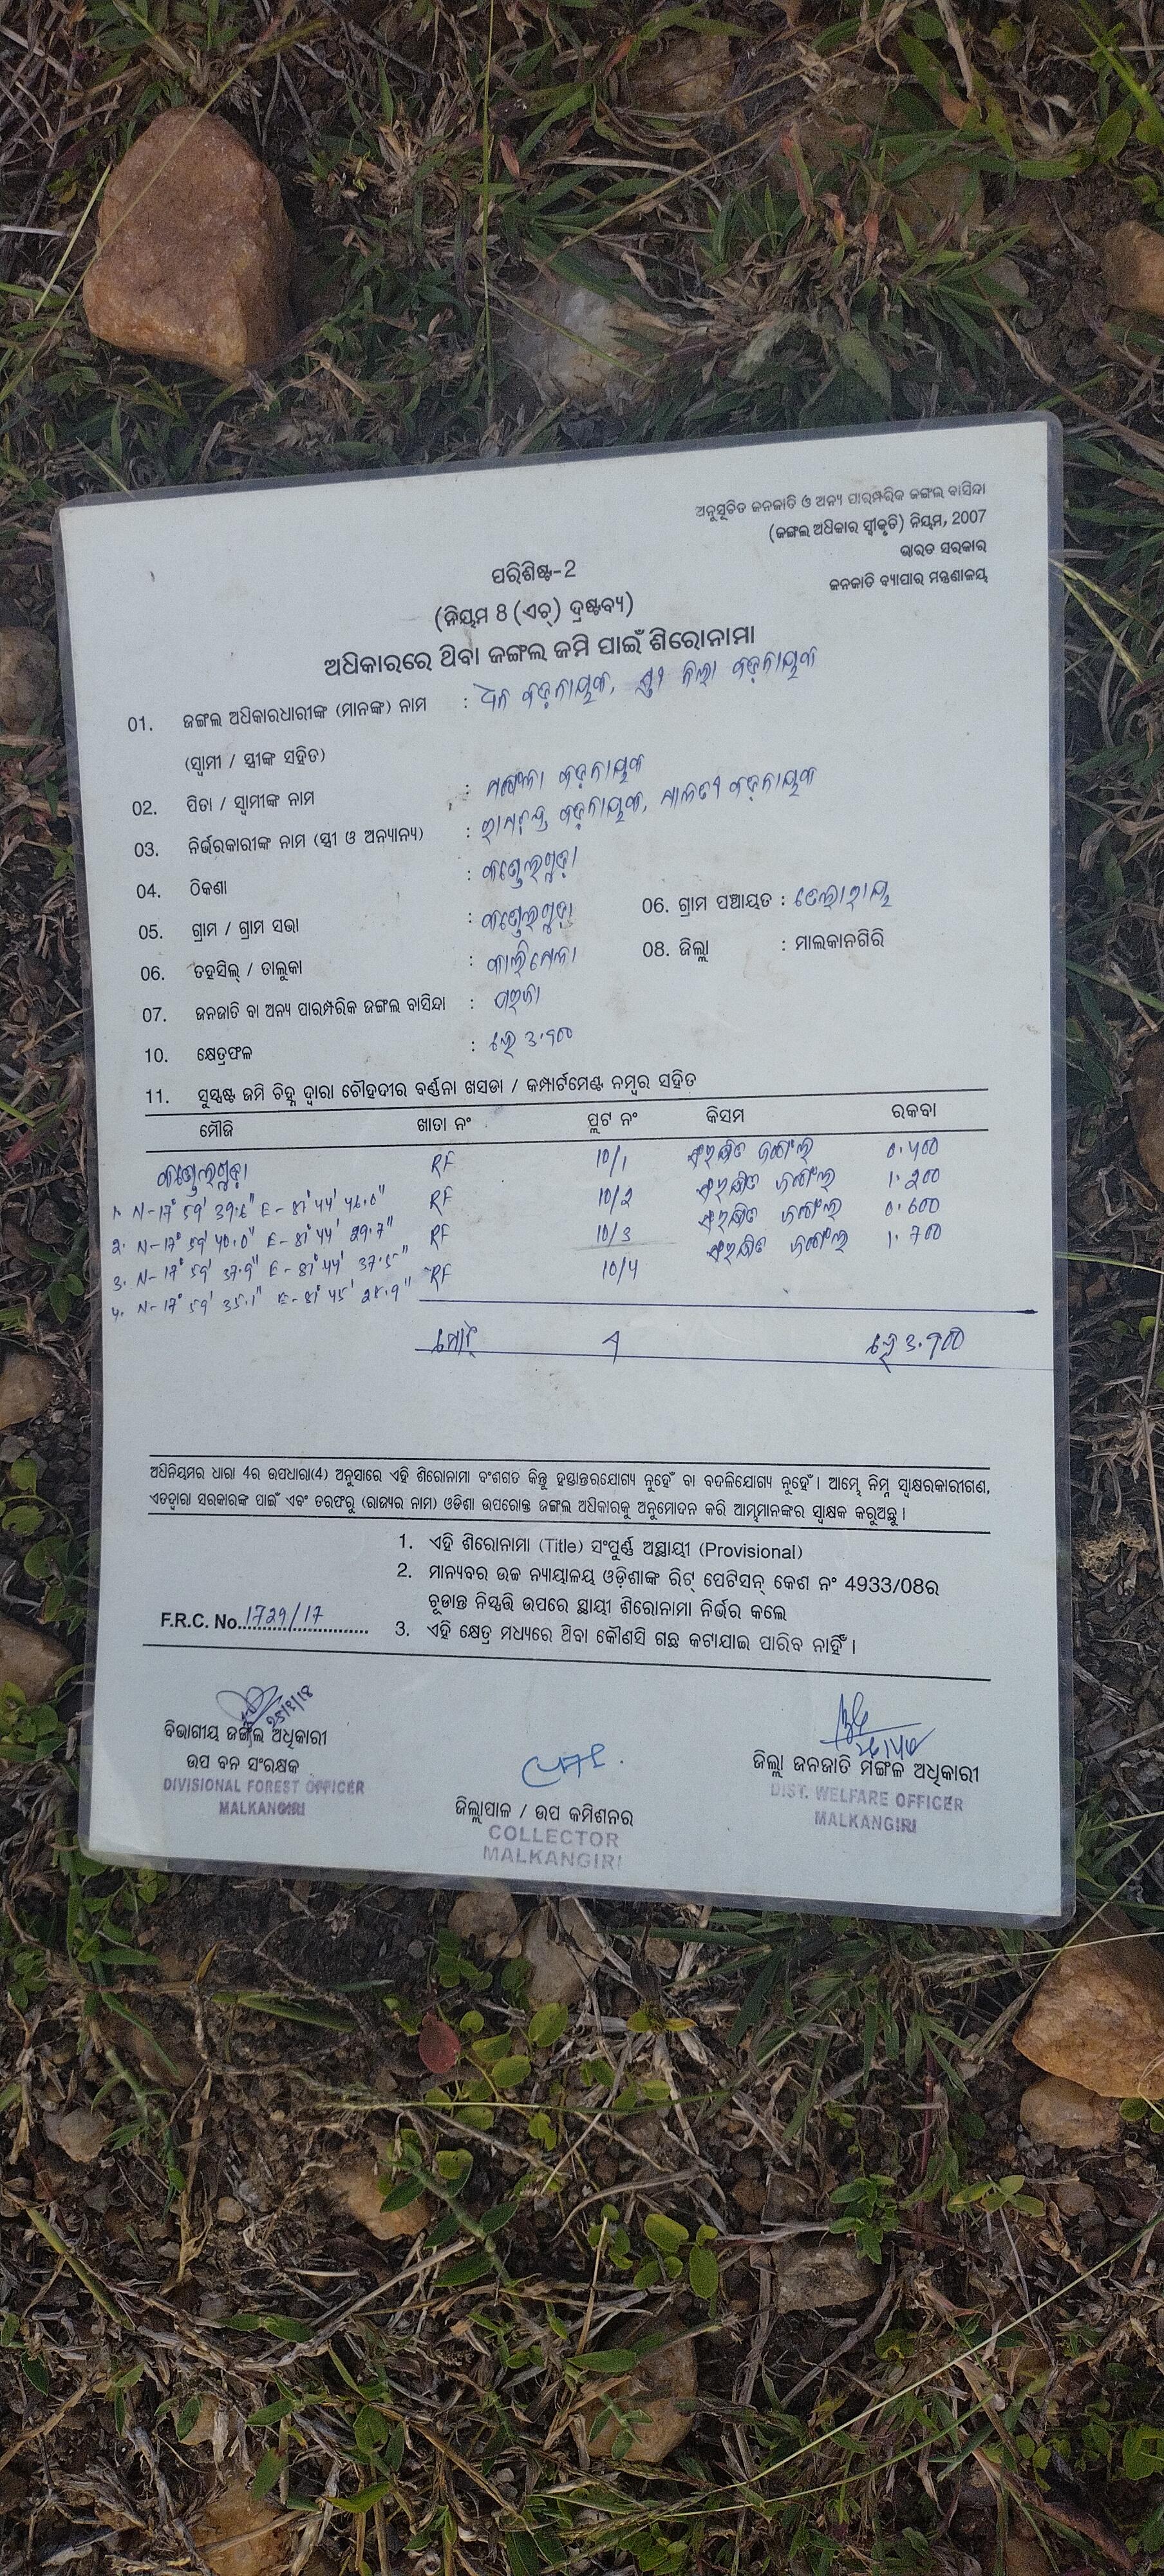 ଅନୁସୂଚିତ ଜନଜାତି ଓ ଅନ୍ୟ ପାରମ୍ପରିକ ଜଙ୍ଗଲ ବାସିନ୍ଦା
(ଜଙ୍ଗଲ ଅଧିକାର ସ୍ୱୀକୃତି) ନିୟମ, 2007
ଭାରତ ସରକାର
ଜନଜାତି ବ୍ୟାପାର ମନ୍ତ୍ରଣାଳୟ
ପରିଶିଷ୍ଟ-2
(ନିୟମ 8 (ଏଚ୍) ଦ୍ରଷ୍ଟବ୍ୟ)
ଅଧିକାରରେ ଥିବା ଜଙ୍ଗଲ ଜମି ପାଇଁ ଶିରୋନାମା
01. ଜଙ୍ଗଲ ଅଧିକାରଧାରୀଙ୍କ (ମାନଙ୍କ) ନାମ : ଧନ କଡ଼ନାୟକ, ସ୍ତ୍ରୀ
(ସ୍ୱାମୀ / ସ୍ତ୍ରୀଙ୍କ ସହିତ)
02. ପିତା / ସ୍ୱାମୀଙ୍କ ନାମ : କଡ଼ନାୟକ
03. ନିର୍ଭରକାରୀଙ୍କ ନାମ (ସ୍ତ୍ରୀ ଓ ଅନ୍ୟାନ୍ୟ) : ରାମଚନ୍ଦ୍ର କଡ଼ନାୟକ, ମାଳତୀ କଡ଼ନାୟକ
04. ଠିକଣା :
05. ଗ୍ରାମ / ଗ୍ରାମ ସଭା : 06. ଗ୍ରାମ ପଞ୍ଚାୟତ : ତେଲାରାୟ
06. ତହସିଲ୍ / ତାଲୁକା : କାଲିମେଳା 08. ଜିଲ୍ଲା : ମାଲକାନଗିରି
07. ଜନଜାତି ବା ଅନ୍ୟ ପାରମ୍ପରିକ ଜଙ୍ଗଲ ବାସିନ୍ଦା : ପରଜା
10. କ୍ଷେତ୍ରଫଳ : ହେ ୩.୯୦୦
11. ସୁସ୍ପଷ୍ଟ ଜମି ଚିହ୍ନ ଦ୍ୱାରା ଚୌହଦୀର ବର୍ଣ୍ଣନା ଖସଡା / କମ୍ପାର୍ଟମେଣ୍ଟ ନମ୍ବର ସହିତ
ମୌଜି ଖାତା ନଂ ପ୍ଲଟ ନଂ କିସମ ରକବା
RF 10/1 ସଂରକ୍ଷିତ ଜଙ୍ଗଲ ୦.୪୦୦
1. N-17° 59' 39.6" E- 81° 44' 46.0" RF 10/2 ସଂରକ୍ଷିତ ଜଙ୍ଗଲ ୧.୨୦୦
2. N-17° 59' 40.0" E- 81° 44' 29.7" RF 10/3 ସଂରକ୍ଷିତ ଜଙ୍ଗଲ ୦.୬୦୦
3. N-17° 59' 37.9" E- 81° 44' 37.5" RF 10/4 ସଂରକ୍ଷିତ ଜଙ୍ଗଲ ୧.୭୦୦
4. N-17° 59' 35.1" E-81° 45' 25.9"
ମୋଟ ୪ ହେ ୩.୯୦୦
ଅଧିନିୟମର ଧାରା 4ର ଉପଧାରା(4) ଅନୁସାରେ ଏହି ଶିରୋନାମା ବଂଶଗତ କିନ୍ତୁ ହସ୍ତାନ୍ତରଯୋଗ୍ୟ ନୁହେଁ ବା ବଦଳିଯୋଗ୍ୟ ନୁହେଁ । ଆମ୍ଭେ ନିମ୍ନ ସ୍ୱାକ୍ଷରକାରୀଗଣ,
ଏତଦ୍ୱାରା ସରକାରଙ୍କ ପାଇଁ ଏବଂ ତରଫରୁ (ରାଜ୍ୟର ନାମ) ଓଡିଶା ଉପରୋକ୍ତ ଜଙ୍ଗଲ ଅଧିକାରକୁ ଅନୁମୋଦନ କରି ଆମ୍ଭମାନଙ୍କର ସ୍ୱାକ୍ଷକ କରୁଅଛୁ ।
1. ଏହି ଶିରୋନାମା (Title) ସଂପୁର୍ଣ୍ଣ ଅସ୍ଥାୟୀ (Provisional)
2. ମାନ୍ୟବର ଉଚ୍ଚ ନ୍ୟାୟାଳୟ ଓଡ଼ିଶାଙ୍କ ରିଟ୍ ପେଟିସନ୍ କେଶ ନଂ 4933/08ର
ଚୂଡାନ୍ତ ନିସ୍ପତ୍ତି ଉପରେ ସ୍ଥାୟୀ ଶିରୋନାମା ନିର୍ଭର କଲେ
F.R.C. No. 1729/17
3. ଏହି କ୍ଷେତ୍ର ମଧ୍ୟରେ ଥିବା କୌଣସି ଗଛ କଟାଯାଇ ପାରିବ ନାହିଁ ।
ବିଭାଗୀୟ ଜଙ୍ଗଲ ଅଧିକାରୀ
ଉପ ବନ ସଂରକ୍ଷକ
DIVISIONAL FOREST OFFICER
MALKANGIRI
ଜିଲ୍ଲାପାଳ / ଉପ କମିଶନର
COLLECTOR
MALKANGIRI
ଜିଲ୍ଲା ଜନଜାତି ମଙ୍ଗଳ ଅଧିକାରୀ
DIST. WELFARE OFFICER
MALKANGIRI